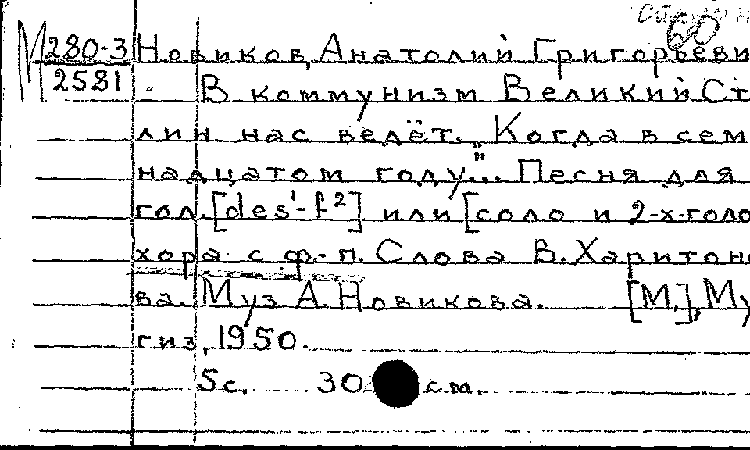 60
М 280-3 Новиков, Анатолий Григорьеви
2581 В коммунизм Великий Ст
лин нас ведёт. „Когда в сем
надцатом году..." Песня для
гол. [des'-f²] или [соло и 2-х-голо
хора с ф.-п. Слова В. Харитоно
ва. Муз А. Новикова. [М.], Му
гиз, 1950.
5 с. 30 см.